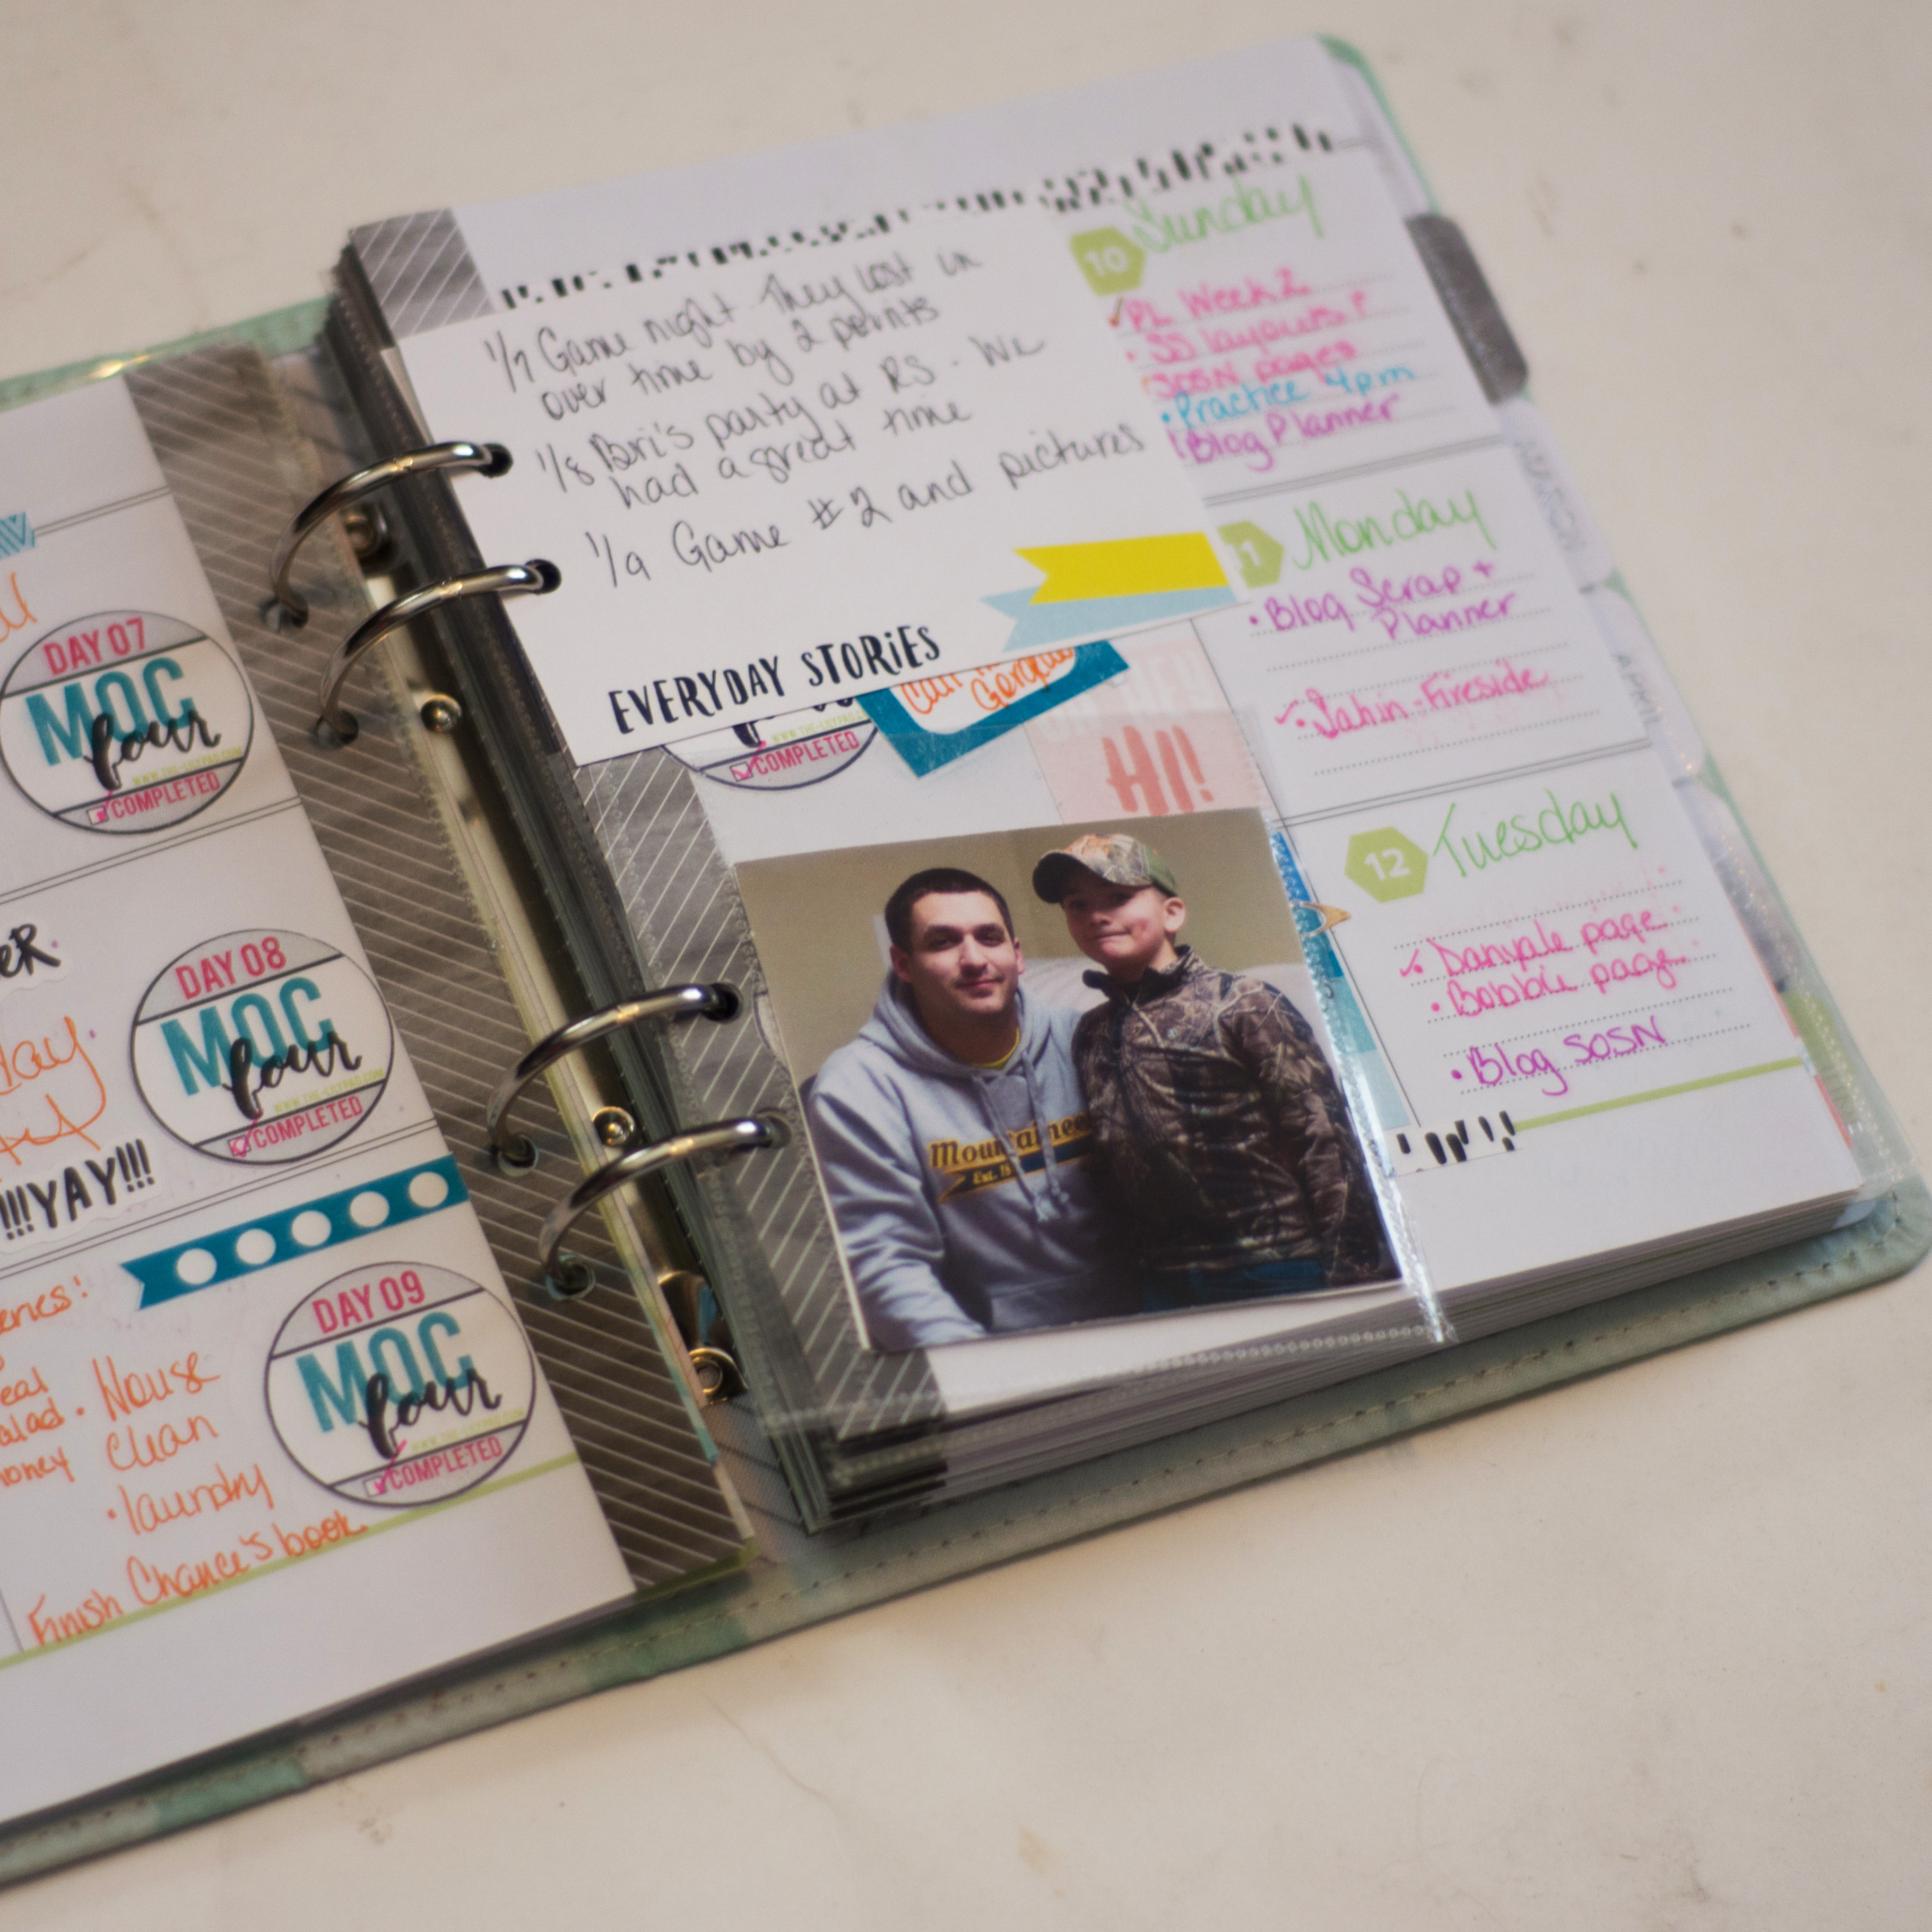 DAY 07
MOC
four
WWW.THE-LUXPAD.COM
COMPLETED
ER
DAY 08
MOC
four
WWW.THE-LUXPAD.COM
COMPLETED
!!!YAY!!!
DAY 09
MOC
four
WWW.THE-LUXPAD.COM
COMPLETED
• House
clean
• laundry
Finish Chance's book
1/7 Game night they lost in
over time by 2 points
1/8 Bri's party at RS - We
had a great time
1/9 Game #2 and pictures
EVERYDAY STORIES
COMPLETED
HI!
Mountainee
Est. 18
10 Sunday
PL Week 2
• SS layouts +
SOSN pages
• Practice 4pm
Blog Planner
11 Monday
• Blog Scrap +
Planner
• Jahin-Fireside
12 Tuesday
• Danyale page
• Bobbie page
• Blog SOSN
MARCH
APRIL